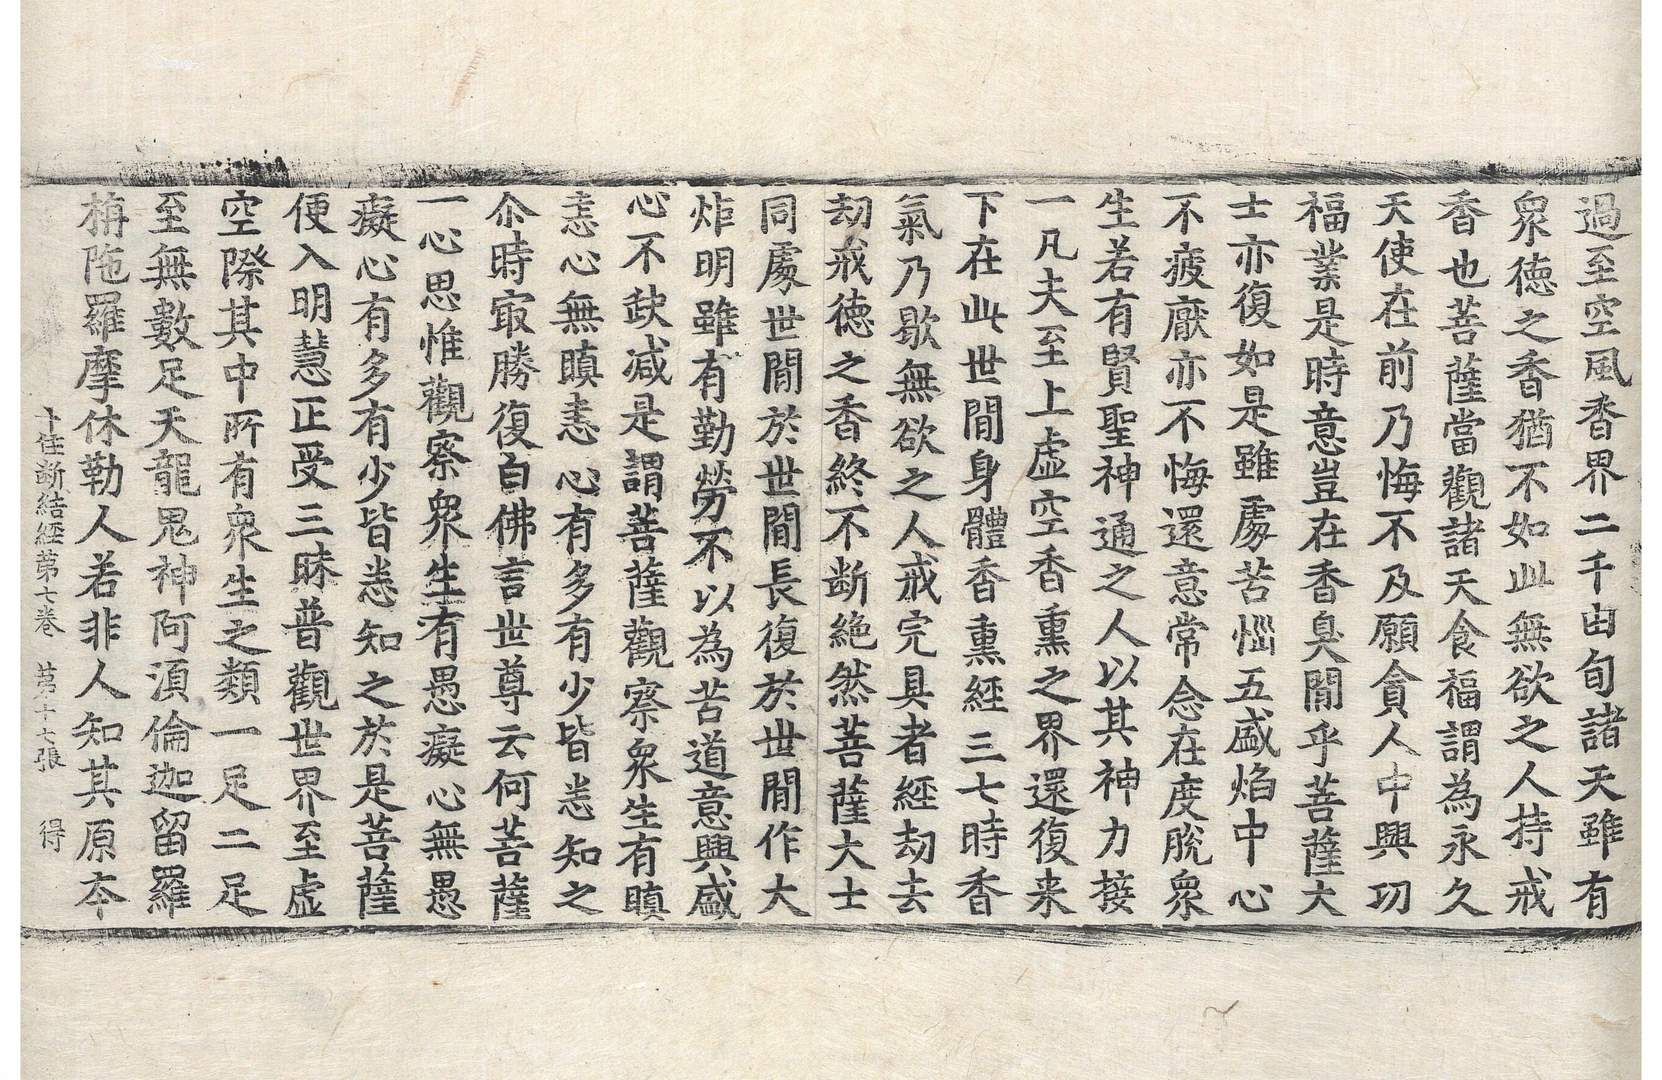 過至空風香界二千由旬諸天雖有
衆德之香猶不如此無欲之人持戒
香也菩薩當觀諸天食福謂為永久
天使在前乃悔不及願貪人中興功
福業是時意豈在香臭閒乎菩薩大
士亦復如是雖處苦惱五盛焰中心
不疲厭亦不悔還意常念在度脫衆
生若有賢聖神通之人以其神力接
一凡夫至上虛空香熏之界還復来
下在此世閒身體香熏經三七時香
氣乃歇無欲之人戒完具者經劫去
劫戒德之香終不断絶然菩薩大士
同處世閒於世閒長復於世閒作大
炬明雖有勤勞不以為苦道意興盛
心不缺減是謂菩薩觀察衆生有瞋
恚心無瞋恚心有多有少皆悉知之
尒時冣勝復白佛言世尊云何菩薩
一心思惟觀察衆生有愚癡心無愚
癡心有多有少皆悉知之於是菩薩
便入明慧正受三昧普觀世界至虛
空際其中所有衆生之類一足二足
至無數足天龍鬼神阿湏倫迦留羅
栴陁羅摩休勒人若非人知其原夲
十住断結經第七卷 第十七張 得